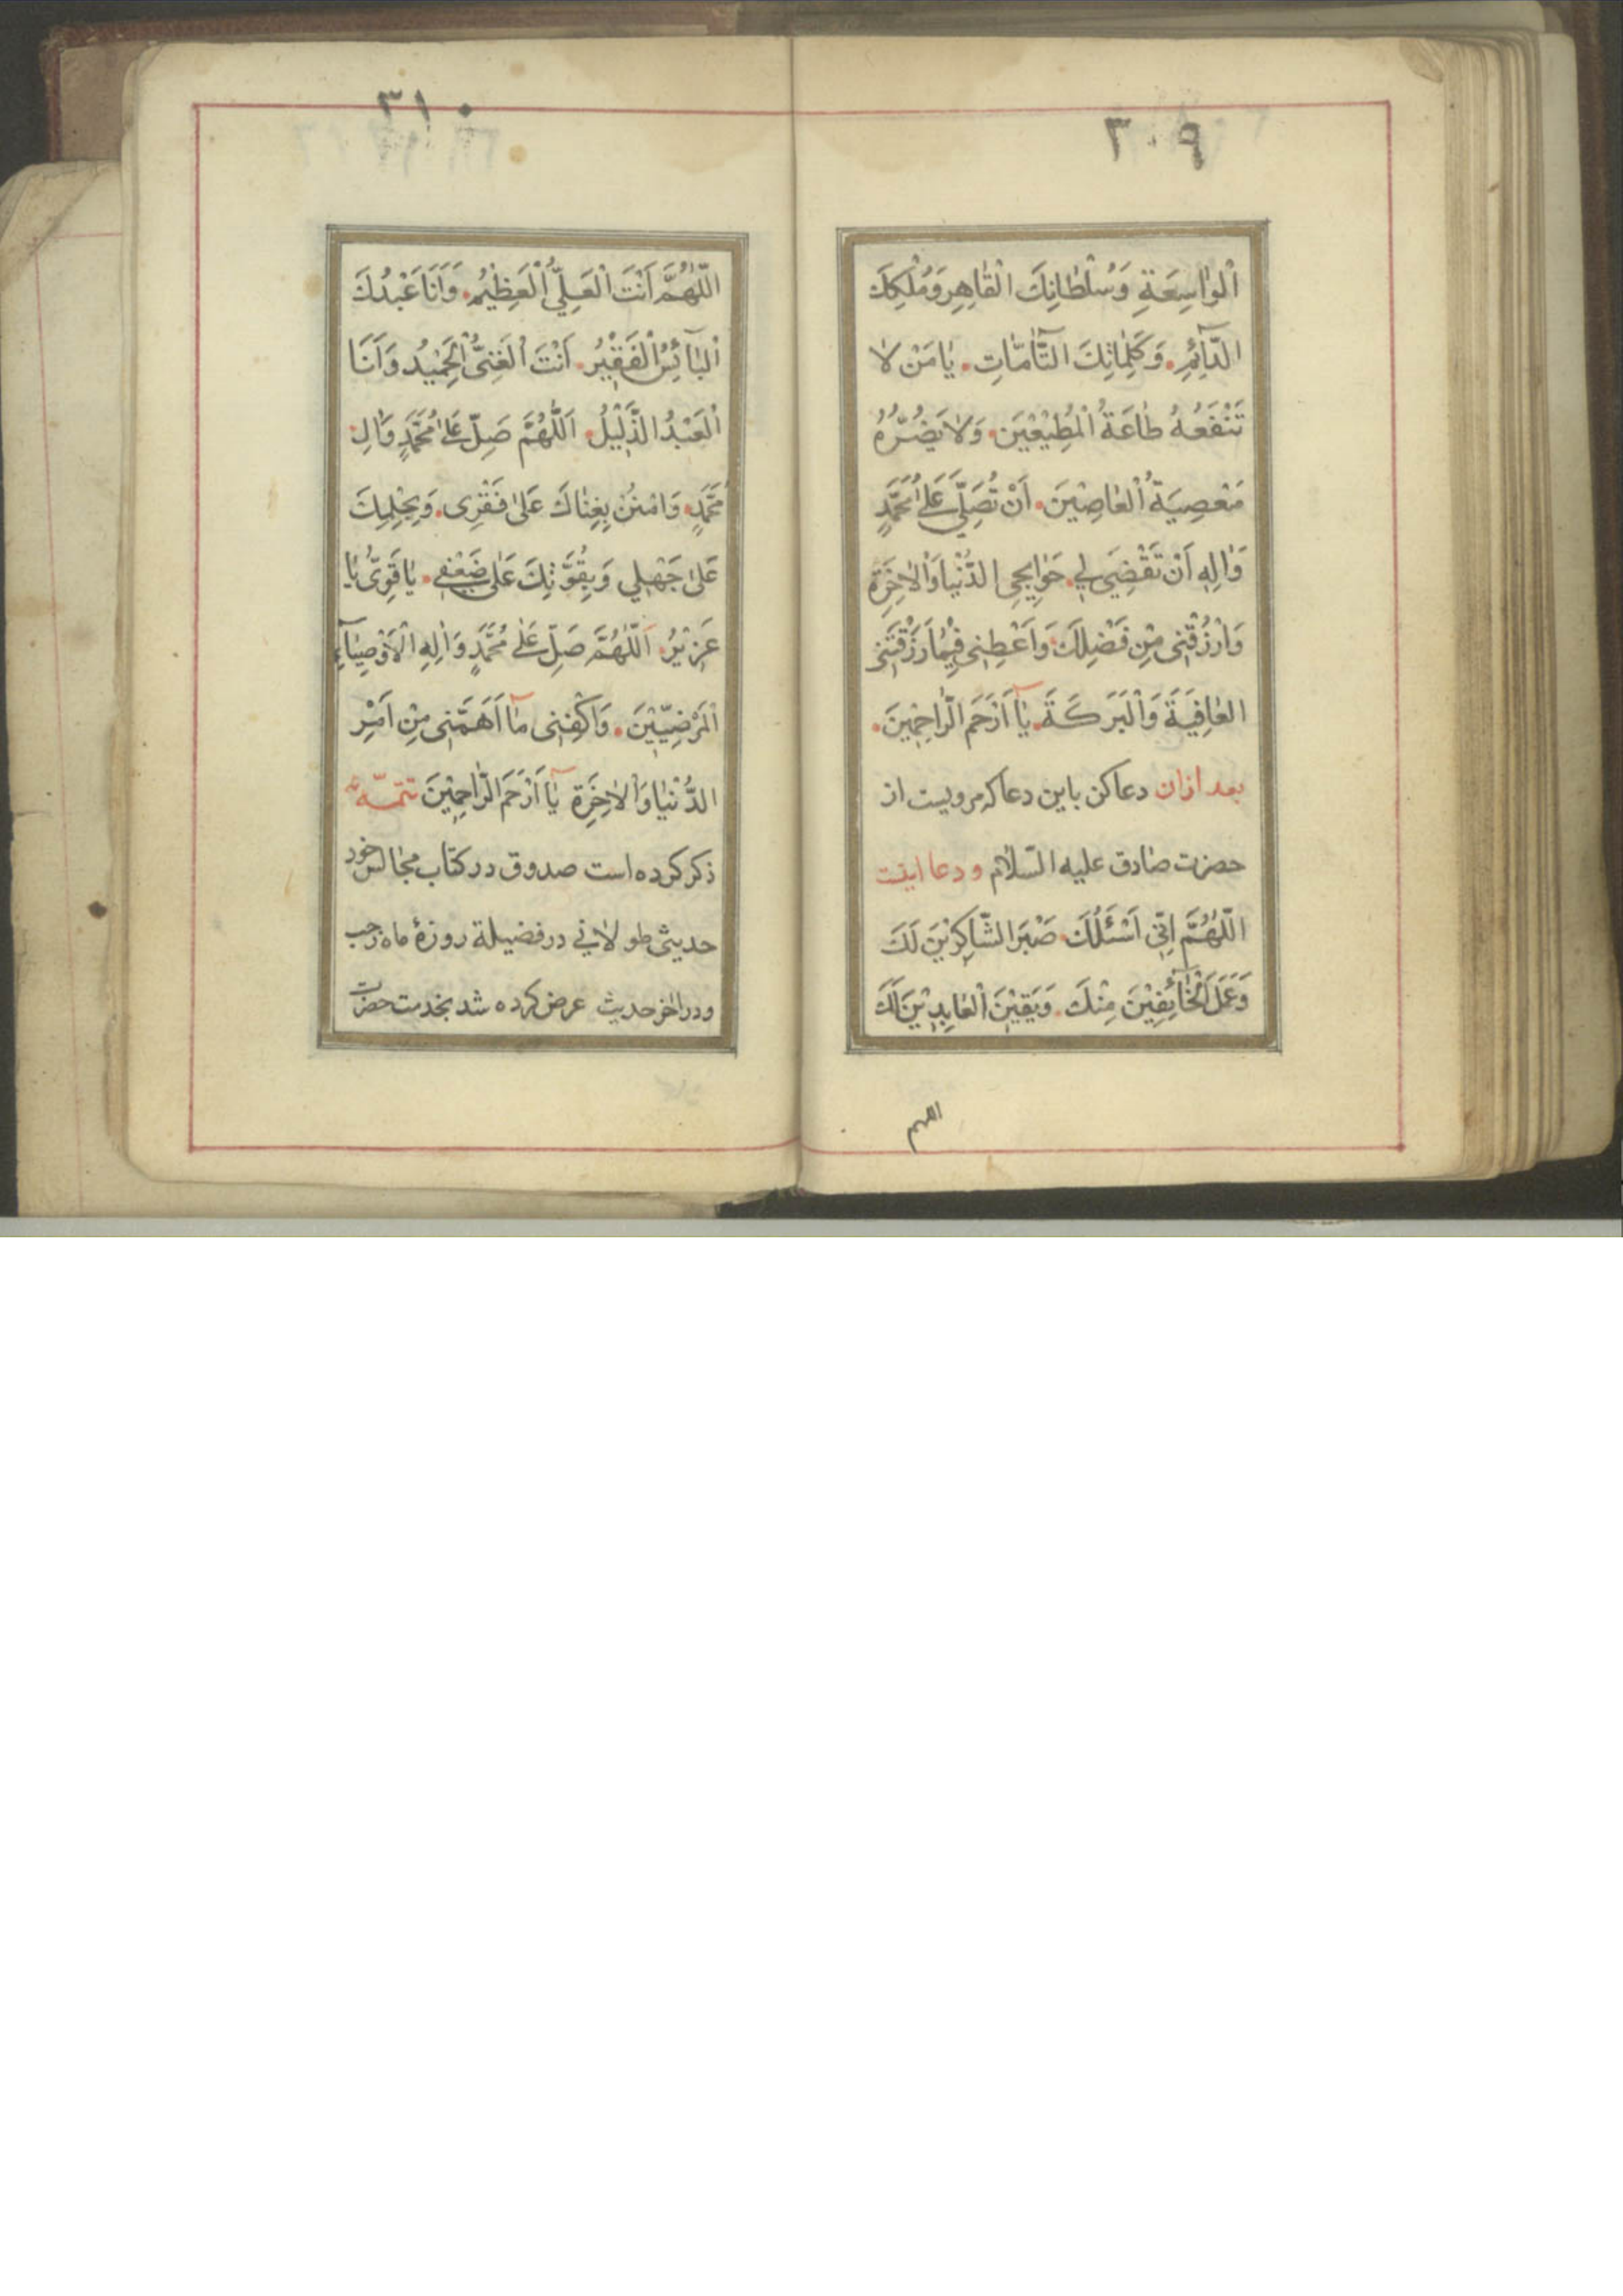 ٣٠٩
اْلوٰاسِعَةِ وَسُلْطٰانِكَ الْقٰاهِرِ وَمُلْكِكَ
الدّٰآئِمِ. وَكَلِمٰاتِكَ التّٰآمّٰاتِ. يٰا مَنْ لاٰ
تَنْفَعُهُ طٰاعَةُ الْمُطِيْعِيْنَ. وَلاٰ يَضُرُّهُ
مَعْصِيَةُ الْعٰاصِيْنَ. اَنْ تُصَلِّيَ عَلىٰ مُحَمَّدٍ
وَاٰلِهِ اَنْ تَقْضِيَ لِي. حَوٰايِجِى الدُّنْيٰا وَاْلاٰخِرَةِ
وَارْزُقْنِى مِنْ فَضْلِكَ. وَاَعْطِنِى فِيْمٰا رَزَقْتَنِى
الْعٰافِيَةَ وَالْبَرَكَةَ. يٰآ اَرْحَمَ الرّٰاحِمِينَ.
بعد ازان دعا كن باين دعا كه مرويست از
حضرت صٰادق عليه السّلام ودعا اينست
اللّٰهُمَّ اِنّي اَسْئَلُكَ صَبْرَ الشّٰاكِرِيْنَ لَكَ
وَعَمَلَ الْخٰآئِفِيْنَ مِنْكَ. وَيَقِيْنَ الْعٰابِدِيْنَ لَكَ
اللهم
٣١٠
اللّٰهُمَّ اَنْتَ الْعَلِيُّ الْعَظِيْمُ. وَاَنَا عَبْدُكَ
اْلبٰآئِسُ الْفَقِيْرُ. اَنْتَ الْغَنِىُّ الْحَمِيْدُ وَاَنَا
الْعَبْدُ الذَّلِيْلُ. اَللّٰهُمَّ صَلِّ عَلىٰ مُحَمَّدٍ وَاٰلِ
مُحَمَّدٍ. وَامْنُنْ بِغِنٰاكَ عَلىٰ فَقْرِى. وَبِحِلْمِكَ
عَلىٰ جَهْلِي وَبِقُوَّتِكَ عَلىٰ ضَعْفِي. يٰا قَوِىُّ يٰا
عَزِيْزُ. اَللّٰهُمَّ صَلِّ عَلىٰ مُحَمَّدٍ وَاٰلِهِ الْاَوْصِيٰآءِ
الْمَرْضِيِّيْنَ. وَاكْفِنِى مٰآ اَهَمَّنِى مِنْ اَمْرِ
الدُّنْيٰا وَالْاٰخِرَةِ يٰآ اَرْحَمَ الرّٰاحِمِيْنَ تتمّه
ذكر كرده است صدوق در كتاب مجٰالس خود
حديثى طولاٰني در فضيلة روزۀ ماه رجب
ودر اٰخر حديث عرض كرده شد بخدمت حضرت